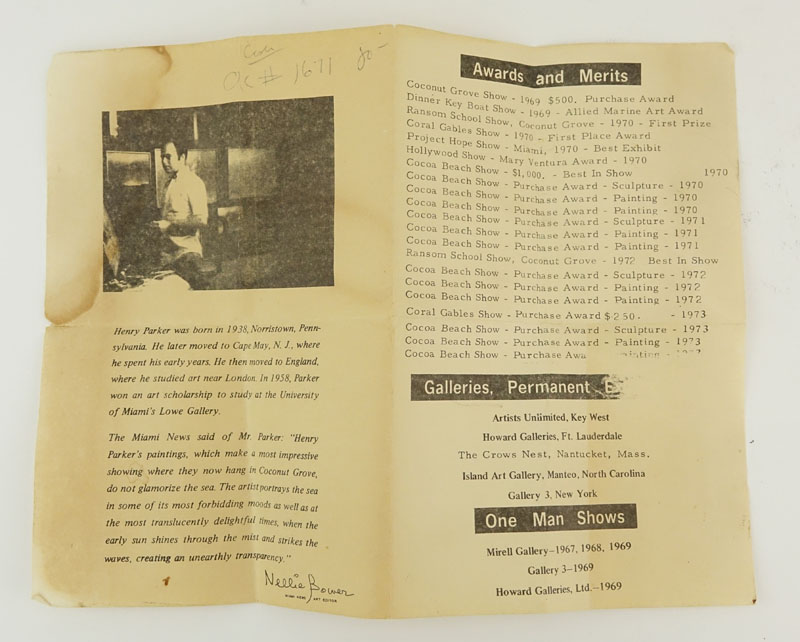 Awards and Merits
Coconut Grove Show - 1969 $500. Purchase Award
Dinner Key Boat Show - 1969 - Allied Marine Art Award
Ransom School Show, Coconut Grove - 1970 - First Prize
Coral Gables Show - 1970 - First Place Award
Project Hope Show - Miami, 1970 - Best Exhibit
Hollywood Show - Mary Ventura Award - 1970
Cocoa Beach Show - $1,000. - Best In Show 1970
Cocoa Beach Show - Purchase Award - Sculpture - 1970
Cocoa Beach Show - Purchase Award - Painting - 1970
Cocoa Beach Show - Purchase Award - Painting - 1970
Cocoa Beach Show - Purchase Award - Sculpture - 1971
Cocoa Beach Show - Purchase Award - Painting - 1971
Cocoa Beach Show - Purchase Award - Painting - 1971
Ransom School Show, Coconut Grove - 1972 Best In Show
Cocoa Beach Show - Purchase Award - Sculpture - 1972
Cocoa Beach Show - Purchase Award - Painting - 1972
Cocoa Beach Show - Purchase Award - Painting - 1972
Coral Gables Show - Purchase Award $250. - 1973
Cocoa Beach Show - Purchase Award - Sculpture - 1973
Cocoa Beach Show - Purchase Award - Painting - 1973
Cocoa Beach Show - Purchase
Galleries, Permanent
Artists Unlimited, Key West
Howard Galleries, Ft. Lauderdale
The Crows Nest, Nantucket, Mass.
Island Art Gallery, Manteo, North Carolina
Gallery 3, New York
One Man Shows
Mirell Gallery-1967, 1968, 1969
Gallery 3-1969
Howard Galleries, Ltd.-1969
# 1671
Henry Parker was born in 1938, Norristown, Penn-
sylvania. He later moved to Cape May, N. J., where
he spent his early years. He then moved to England,
where he studied art near London. In 1958, Parker
won an art scholarship to study at the University
of Miami's Lowe Gallery.
The Miami News said of Mr. Parker: "Henry
Parker's paintings, which make a most impressive
showing where they now hang in Coconut Grove,
do not glamorize the sea. The artist portrays the sea
in some of its most forbidding moods as well as at
the most translucently delightful times, when the
early sun shines through the mist and strikes the
waves, creating an unearthly transparency."
Nellie Bower
MIAMI NEWS ART EDITOR